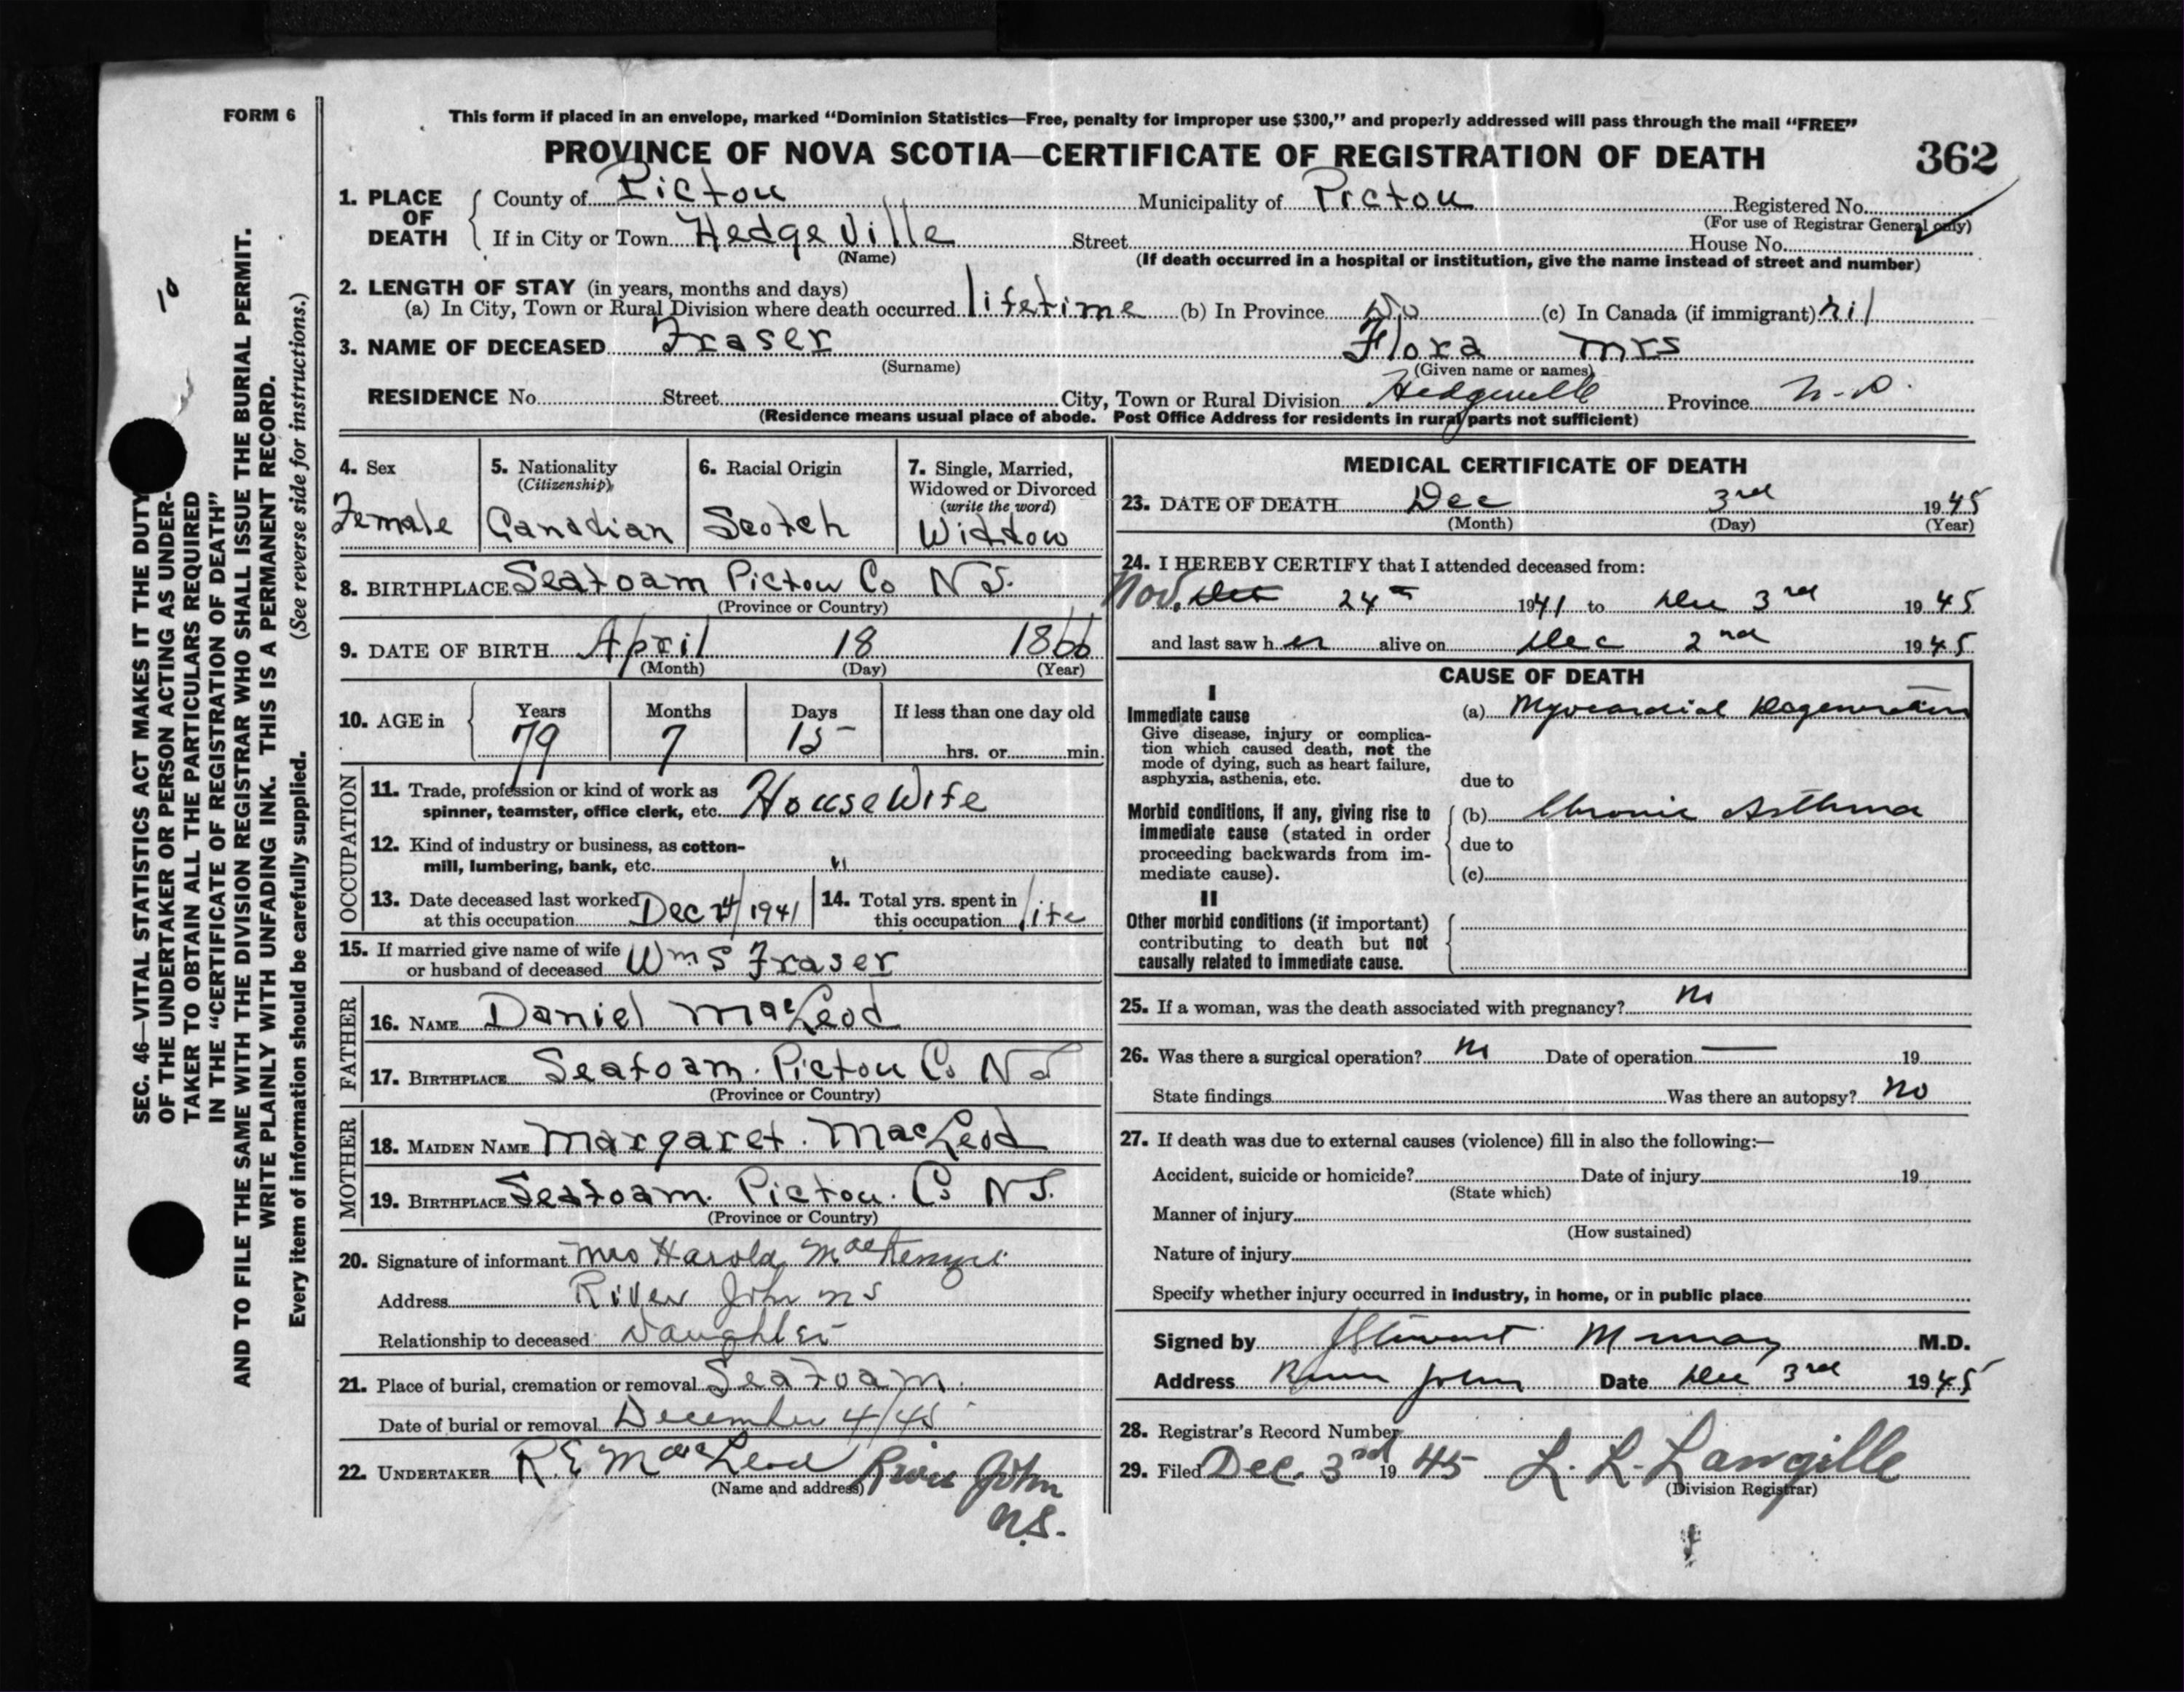 FORM 6
This form if placed in an envelope, marked "Dominion Statistics—Free, penalty for improper use $300," and properly addressed will pass through the mail "FREE"
PROVINCE OF NOVA SCOTIA—CERTIFICATE OF REGISTRATION OF DEATH 362
1. PLACE OF DEATH County of Pictou Municipality of Pictou Registered No.
(For use of Registrar General only)
If in City or Town Hedge Ville Street House No.
(Name) (If death occurred in a hospital or institution, give the name instead of street and number)
2. LENGTH OF STAY (in years, months and days)
(a) In City, Town or Rural Division where death occurred lifetime (b) In Province Do (c) In Canada (if immigrant) nil
3. NAME OF DECEASED Fraser Flora Mrs
(Surname) (Given name or names)
RESIDENCE No. Street City, Town or Rural Division Hedgeville Province N.S.
(Residence means usual place of abode. Post Office Address for residents in rural parts not sufficient)
4. Sex Female
5. Nationality (Citizenship) Canadian
6. Racial Origin Scotch
7. Single, Married, Widowed or Divorced (write the word) Widdow
8. BIRTHPLACE Seafoam Pictou Co N S.
(Province or Country)
9. DATE OF BIRTH April 18 1866
(Month) (Day) (Year)
10. AGE in Years Months Days If less than one day old
79 7 15 hrs. or min.
OCCUPATION
11. Trade, profession or kind of work as
spinner, teamster, office clerk, etc. HouseWife
12. Kind of industry or business, as cotton-
mill, lumbering, bank, etc. "
13. Date deceased last worked
at this occupation Dec 24/1941
14. Total yrs. spent in
this occupation life
15. If married give name of wife
or husband of deceased Wm S Fraser
FATHER
16. NAME Daniel MacLeod
17. BIRTHPLACE Seafoam. Pictou Co N S
(Province or Country)
MOTHER
18. MAIDEN NAME Margaret. MacLeod
19. BIRTHPLACE Seafoam. Pictou. Co N S.
(Province or Country)
20. Signature of informant Mrs Harold MacKenzie
Address River John N S
Relationship to deceased Daughter
21. Place of burial, cremation or removal Seafoam.
Date of burial or removal December 4/45
22. UNDERTAKER R E MacLeod River John
(Name and address)
N.S.
MEDICAL CERTIFICATE OF DEATH
23. DATE OF DEATH Dec 3rd 1945
(Month) (Day) (Year)
24. I HEREBY CERTIFY that I attended deceased from:
Nov. Dec 24th 1941 to Dec 3rd 1945
and last saw her alive on Dec 2nd 1945
CAUSE OF DEATH
I
Immediate cause (a) Myocardial Degeneration
Give disease, injury or complica-
tion which caused death, not the
mode of dying, such as heart failure,
asphyxia, asthenia, etc. due to
Morbid conditions, if any, giving rise to (b) Chronic Asthma
immediate cause (stated in order due to
proceeding backwards from im-
mediate cause). (c)
II
Other morbid conditions (if important)
contributing to death but not
causally related to immediate cause.
25. If a woman, was the death associated with pregnancy? no
26. Was there a surgical operation? no Date of operation — 19
State findings Was there an autopsy? no
27. If death was due to external causes (violence) fill in also the following:—
Accident, suicide or homicide? Date of injury 19
(State which)
Manner of injury
(How sustained)
Nature of injury
Specify whether injury occurred in industry, in home, or in public place
Signed by J Stewart Murray M.D.
Address River John Date Dec 3rd 1945
28. Registrar's Record Number
29. Filed Dec. 3rd 19 45 L. R. Langille
(Division Registrar)
10
SEC. 46—VITAL STATISTICS ACT MAKES IT THE DUTY
OF THE UNDERTAKER OR PERSON ACTING AS UNDER-
TAKER TO OBTAIN ALL THE PARTICULARS REQUIRED
IN THE "CERTIFICATE OF REGISTRATION OF DEATH"
AND TO FILE THE SAME WITH THE DIVISION REGISTRAR WHO SHALL ISSUE THE BURIAL PERMIT.
WRITE PLAINLY WITH UNFADING INK. THIS IS A PERMANENT RECORD.
Every item of information should be carefully supplied. (See reverse side for instructions.)